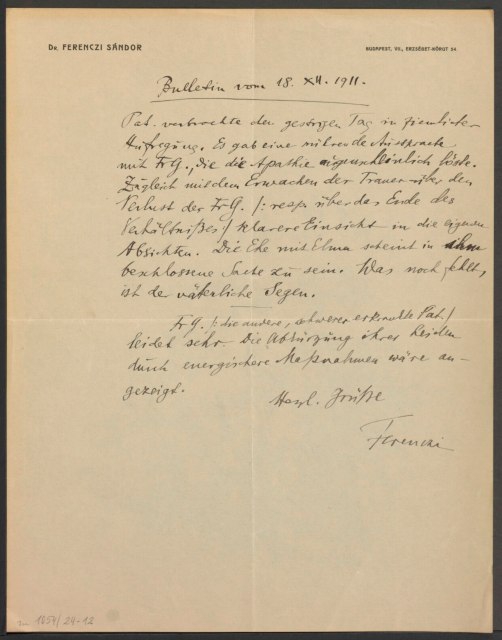 Dr. FERENCZI SÁNDOR
BUDAPEST, VII., ERZSÉBET-KÖRÚT 54.
Bulletin vom 18. XII. 1911.
Pat. verbrachte den gestrigen Tag in ziemlicher
Aufregung. Es gab eine rührende Aussprache
mit Fr G., die die Apathie augenscheinlich löste.
Zugleich mit dem Erwachen der Trauer über den
Verlust der Fr G. /: resp. über das Ende des
Verhältnißes / klarere Einsicht in die eigenen
Absichten. Die Ehe mit Elma scheint in ihm
beschlossene Sache zu sein. Was noch fehlt,
ist der väterliche Segen.
Fr G. /: die andere, schwerer erkrankte Pat. /
leidet sehr. Die Abkürzung ihrer Leiden
durch energischere Maßnahmen wäre an-
gezeigt.
Herzl. Grüße
Ferenczi
1054/24-12